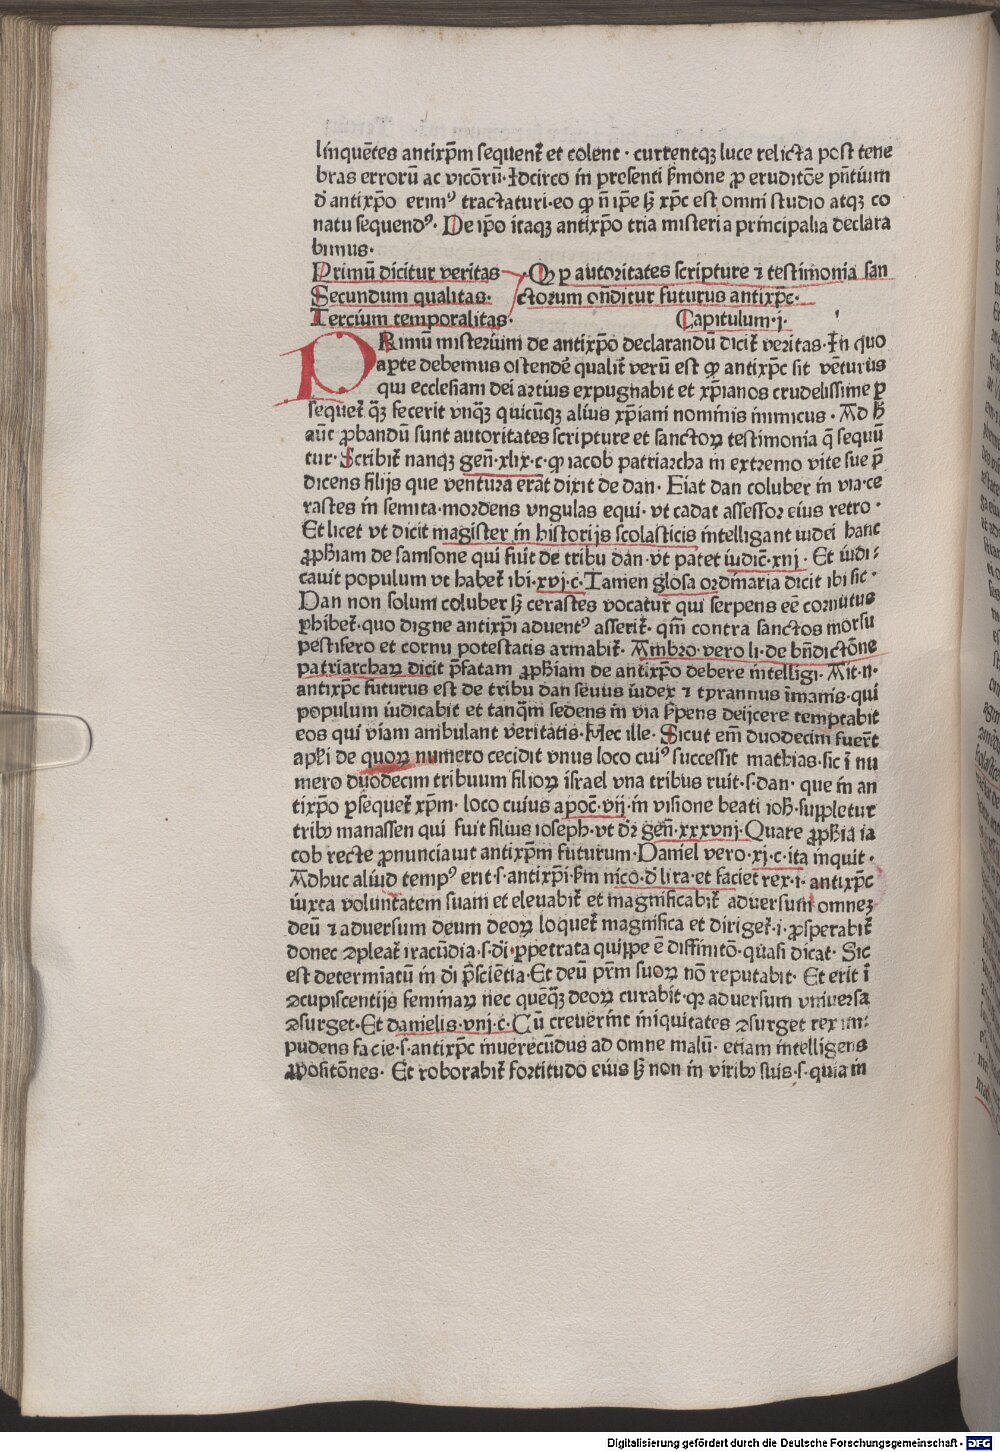 linquētes antixp̄m sequent᷑ et colent · currentqꝫ luce relicta post tene
bras errorū ac vicōrū· Idcirco in presenti s̄mone ꝓ eruditōe pn̄tium
d̓ antixp̄o erimꝰ tractaturi·eo ꝙ n̄ ip̄e sꝫ xp̄c est omni studio atqꝫ co
natu sequendꝰ· De ip̄o itaqꝫ antixp̄o tria misteria principalia declara
bimus·
Primū dicitur veritas
Secundum qualitas·
Tercium temporalitas·
·Q ꝑ autoritates scripture ⁊ testimonia san
ctorum on̄ditur futurus antixp̄c·
Capitulum·j·
PRimū misterium de antixp̄o declarandū dicit᷑ veritas·In quo
aparte debemus ostendē qualit᷑ verū est ꝙ antixp̄c sit vēturus
qui ecclesiam dei artius expugnabit et xp̄ianos crudelissime ꝑ
sequet᷑ q̄ꝫ fecerit vnq̄ꝫ quicūqꝫ alius xp̄iani nominis inimicus · Ad h̄
aūt ꝓbandū sunt autoritates scripture et sanctoꝝ testimonia q̄ sequū
tur· Scribit᷑ nanqꝫ gen̄·xlix·c·ꝙ iacob patriarcha in extremo vite sue p̄
dicens filijs que ventura erāt dixit de dan· Fiat dan coluber in via·ce
rastes in semita·mordens vngulas equi· vt cadat assessor eius retro ·
Et licet vt dicit magister in historijs scolasticis intelligant iudei hanc
ꝓph̄iam de samsone qui fuit de tribu dan·vt patet iudic̄·xiij · Et iudi-
cauit populum vt habet᷑ ibi·xvj·c·Tamen glosa ordinaria dicit ibi sic·
Dan non solum coluber sꝫ cerastes vocatur qui serpens eē cornutus
ꝑhibet᷑·quo digne antixp̄i aduentꝰ asserit᷑· qm̄ contra sanctos morsu
pestifero et cornu potestatis armabit᷑· Ambro·vero li·de bn̄dictōne
patriarchaꝝ dicit p̄fatam ꝓph̄iam de antixp̄o debere intelligi· Ait·n·
antixp̄c futurus est de tribu dan seuus iudex ⁊ tyrannus īmanis·qui
populum iudicabit et tanq̄m sedens in via s̄pens deijcere temptabit
eos qui viam ambulant veritatis·Hec ille· Sicut em̄ duodecim fuer̄t
apl̄i de quoꝝ numero cecidit vnus loco cuiꝰ successit mathias·sic ī nu
mero duodecim tribuum filioꝝ israel vna tribus ruit·s·dan· que in an
tixp̄o ꝑsequet᷑ xp̄m· loco cuius apoc̄·vij·in visione beati ioh̄·suppletur
tribꝰ manassen qui fuit filius ioseph·vt dr̄ gen̄·xxxviij·Quare ꝓph̄ia ia
cob recte ꝓnunciauit antixp̄m futurum·Daniel vero·xj·c·ita inquit ·
Adhuc aliud tempꝰ erit·s·antixp̄i·s̄m nico·d̓ lira·et faciet rex·i· antixp̄c
iuxta voluntatem suam et eleuabit᷑ et magnificabit᷑ aduersum omneꝫ
deū ⁊ aduersum deum deoꝝ loquet᷑ magnifica et diriget᷑·i·ꝓsperabit᷑
donec ꝯpleat᷑ iracūdia·s·di·ꝑpetrata quippe ē diffinitō·quasi dicat· Sic
est determīatū in di p̄sciētia·Et deū pr̄m suoꝝ nō reputabit· Et erit ī
ꝯcupiscentijs feminaꝝ nec quēqꝫ deoꝝ curabit·qꝛ aduersum vniuersa
ꝯsurget·Et danielis·viij·c·Cū creuerint iniquitates ꝯsurget rex im-
pudens facie·s·antixp̄c inuerecūdus ad omne malū· etiam intelligens
ꝓpositōnes· Et roborabit᷑ fortitudo eius sꝫ non in viribꝰ suis·s·quia in
Digitalisierung gefördert durch die Deutsche Forschungsgemeinschaft - DFG